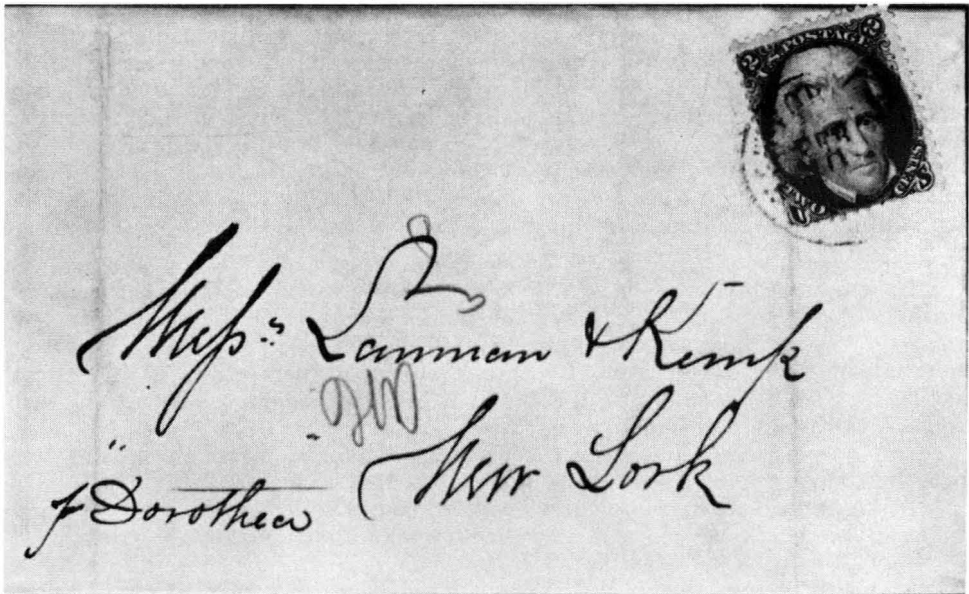 2 U.S. POSTAGE 2
TWO CENTS
Mess.rs Lanman & Kemp
New York
p "Dorothea"